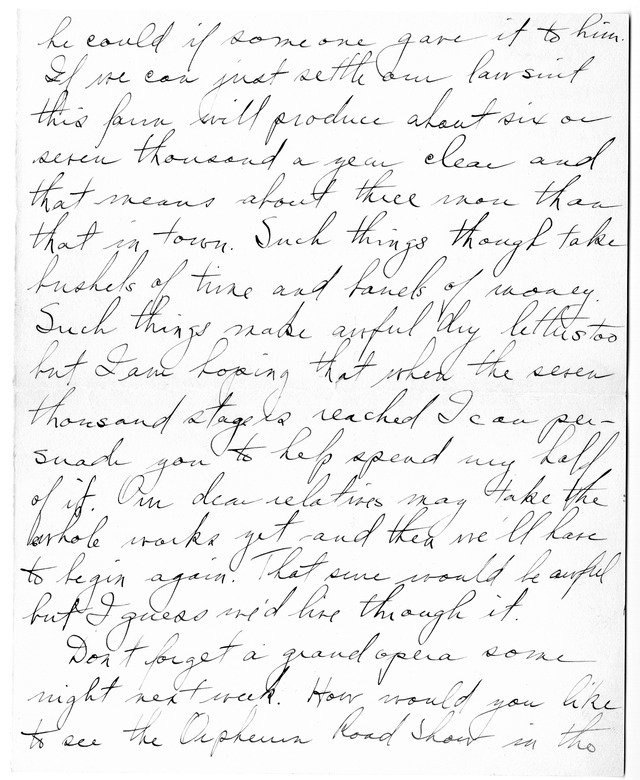 he could if someone gave it to him.
If we can just settle our lawsuit
this farm will produce about six or
seven thousand a year clear and
that means about three more than
that in town. Such things though take
bushels of time and barrels of money.
Such things make awful dry letters too
but I am hoping that when the seven
thousand stage is reached I can per-
suade you to help spend my half
of it. Our dear relatives may take the
whole works yet and then we'll have
to begin again. That sure would be awful
but I guess we'd live through it.
Don't forget a grand opera some
night next week. How would you like
to see the Orpheum Road Show in the